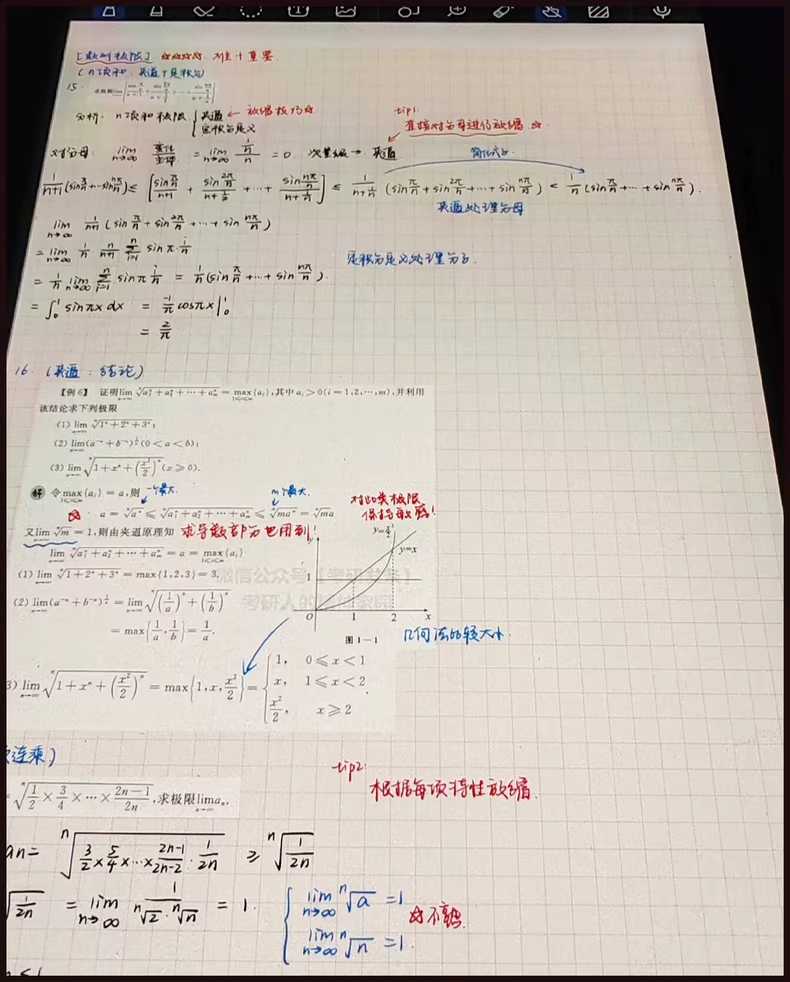 [数列极限] ☆☆☆☆ 难+重要
(n项和：夹逼+定积分)
15.
分析： n项和极限 { 夹逼 ← 放缩技巧☆
定积分定义
tip1:
直接对分母进行放缩 ☆
对分母: lim n→∞ 变化/主体 = lim n→∞ (1/n)/n = 0 次量级 → 夹逼
简化式子
1/(n+1) (sin π/n + ··· sin nπ/n) ≤ [ (sin π/n)/(n+1) + (sin 2π/n)/(n+1/2) + ··· + (sin nπ/n)/(n+1/n) ] ≤ 1/(n+1/n) (sin π/n + sin 2π/n + ··· + sin nπ/n) < 1/n (sin π/n + ··· + sin nπ/n).
夹逼处理分母
lim n→∞ 1/(n+1) (sin π/n + sin 2π/n + ··· + sin nπ/n)
= lim n→∞ 1/n · n/(n+1) Σ i=1 n sin π·i/n
定积分定义处理分子
= 1/n lim n→∞ Σ i=1 n sin π i/n = 1/n (sin π/n + ··· + sin nπ/n).
= ∫₀¹ sinπx dx = -1/π cosπx |₀¹
= 2/π
16. (夹逼：结论)
【例6】 证明 lim n→∞ ⁿ√(a₁ⁿ + a₂ⁿ + ··· + aₘⁿ) = max 1≤i≤m {aᵢ}, 其中 aᵢ > 0 (i = 1,2,···,m), 并利用
该结论求下列极限
(1) lim n→∞ ⁿ√(1ⁿ + 2ⁿ + 3ⁿ);
(2) lim n→∞ (a⁻ⁿ + b⁻ⁿ)^(1/n) (0 < a < b);
(3) lim n→∞ ⁿ√(1 + xⁿ + (x²/2)ⁿ) (x ≥ 0).
解 令 max 1≤i≤m {aᵢ} = a, 则 一个最大. m个最大.
对此类极限
保持敏感!
☆ a = ⁿ√aⁿ ≤ ⁿ√(a₁ⁿ + a₂ⁿ + ··· + aₘⁿ) ≤ ⁿ√(maⁿ) = ⁿ√m a
又 lim n→∞ ⁿ√m = 1, 则由夹逼原理知 求导数部分也用到!
lim n→∞ ⁿ√(a₁ⁿ + a₂ⁿ + ··· + aₘⁿ) = a = max 1≤i≤m {aᵢ}
(1) lim n→∞ ⁿ√(1ⁿ + 2ⁿ + 3ⁿ) = max{1,2,3} = 3.
(2) lim n→∞ (a⁻ⁿ + b⁻ⁿ)^(1/n) = lim n→∞ ⁿ√((1/a)ⁿ + (1/b)ⁿ)
= max{1/a, 1/b} = 1/a.
y
y=x²/2
y=x
1
O 1 2 x
图 1-1
几何法比较大小.
3) lim n→∞ ⁿ√(1 + xⁿ + (x²/2)ⁿ) = max{1, x, x²/2} = { 1, 0 ≤ x < 1
x, 1 ≤ x < 2
x²/2, x ≥ 2
连乘)
tip2:
根据每项特性放缩.
= ⁿ√(1/2 × 3/4 × ··· × (2n-1)/2n), 求极限 lim n→∞ aₙ.
an = ⁿ√(3/2 × 5/4 × ··· × (2n-1)/(2n-2) · 1/2n) ≥ ⁿ√(1/2n)
√(1/2n) = lim n→∞ 1/(ⁿ√2 · ⁿ√n) = 1.
{ lim n→∞ ⁿ√a = 1
lim n→∞ ⁿ√n = 1.
☆不熟